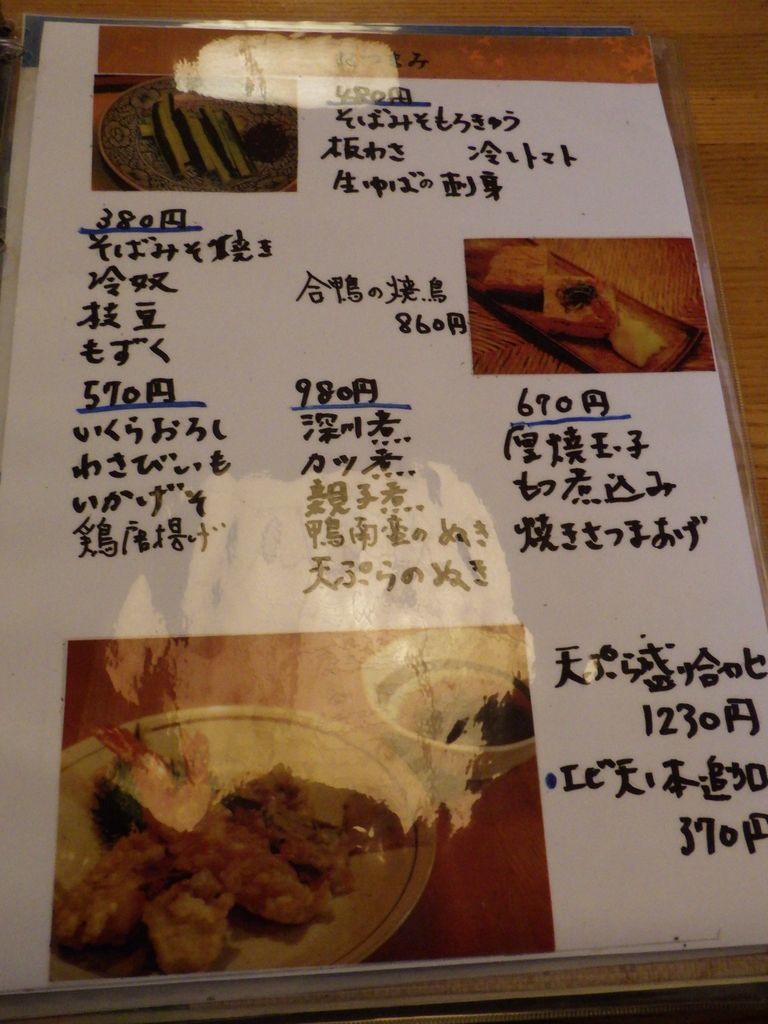 おつまみ
480円
そばみそもろきゅう
板わさ 冷トマト
生ゆばの刺身
380円
そばみそ焼き
冷奴
枝豆
もずく
合鴨の焼鳥
860円
570円
いくらおろし
わさびいも
いかげそ
鶏唐揚げ
980円
深川煮
カツ煮
親子煮
鴨南蛮のぬき
天ぷらのぬき
670円
厚焼玉子
もつ煮込み
焼きさつまあげ
天ぷら盛り合わせ
1230円
・エビ天1本追加
370円